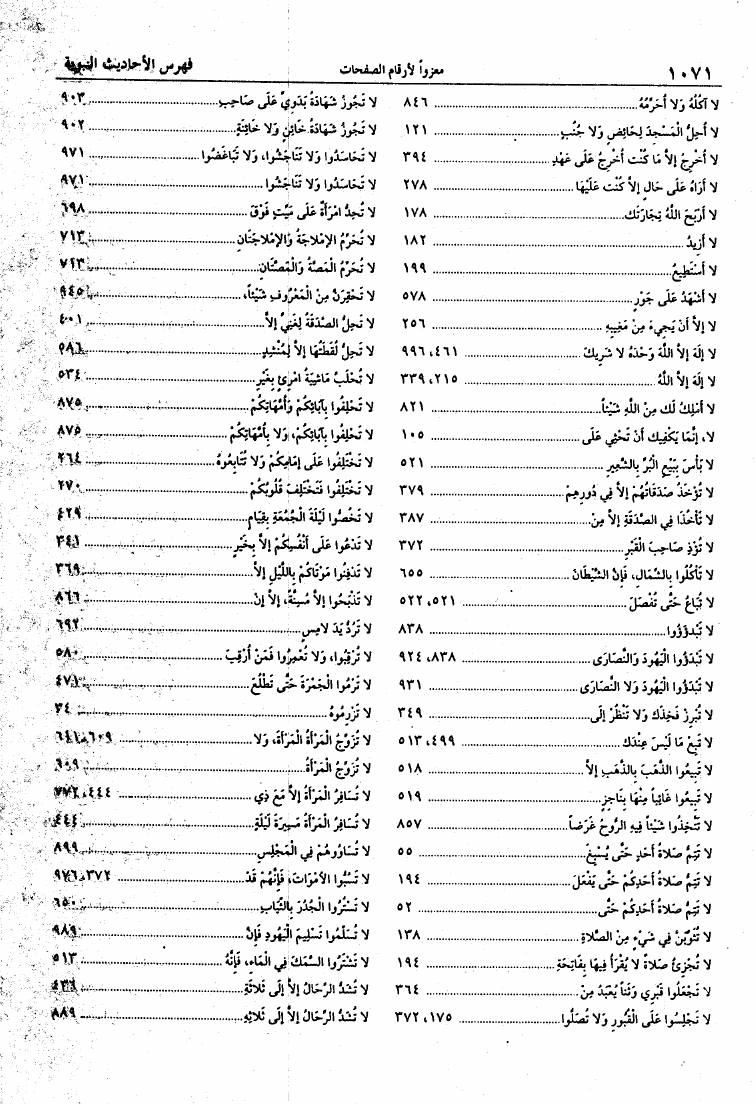 ١٠٧١ معزواً لأرقام الصفحات فهرس الأحاديث النبوية
لا آكُلُهُ وَلا أُحَرِّمُهُ ........ ٨٤٦
لا أُحِلُّ المَسْجِدَ لِحَائِضٍ وَلا جُنُبٍ ........ ١٢١
لا أُخْرِجُ إلاَّ مَا كُنْت أُخْرِجُ عَلَى عَهْدِ ........ ٣٩٤
لا أَرَاهُ عَلَى حَالٍ إلاَّ كُنْت عَلَيْهَا ........ ٢٧٨
لا أَرْبَحَ اللَّهُ تِجَارَتَك ........ ١٧٨
لا أَزِيدُ ........ ١٨٢
لا أَسْتَطِيعُ ........ ١٩٩
لا أَشْهَدُ عَلَى جَوْرٍ ........ ٥٧٨
لا إلاَّ أَنْ يَجِيءَ مِنْ مَغِيبِهِ ........ ٢٥٦
لا إلَهَ إلاَّ اللَّهُ وَحْدَهُ لا شَرِيكَ ........ ٤٦١، ٩٩٦
لا إلَهَ إلاَّ اللَّهُ ........ ٢١٥، ٣٣٩
لا أَمْلِكُ لَك مِنْ اللَّهِ شَيْئاً ........ ٨٢١
لا، إنَّمَا يَكْفِيك أَنْ تَحْثِي عَلَى ........ ١٠٥
لا بَأْسَ بِبَيْعِ الْبُرِّ بِالشَّعِيرِ ........ ٥٢١
لا تُؤْخَذُ صَدَقَاتُهُمْ إلاَّ فِي دُورِهِمْ ........ ٣٧٩
لا تَأْخُذَا فِي الصَّدَقَةِ إلاَّ مِنْ ........ ٣٨٧
لا تُؤْذِ صَاحِبَ القَبْرِ ........ ٣٧٢
لا تَأْكُلُوا بِالشِّمَالِ، فَإِنَّ الشَّيْطَانَ ........ ٦٥٥
لا تُبَاعُ حَتَّى تُفْصَلَ ........ ٥٢١، ٥٢٢
لا تَبْدَؤُوا ........ ٨٣٨
لا تَبْدَؤُوا الْيَهُودَ وَالنَّصَارَى ........ ٨٣٨، ٩٢٤
لا تَبْدَؤُوا الْيَهُودَ وَلا النَّصَارَى ........ ٩٣١
لا تُبْرِزْ فَخِذَك وَلا تَنْظُرْ إلَى ........ ٣٤٩
لا تَبِعْ مَا لَيْسَ عِنْدَك ........ ٤٩٩، ٥١٣
لا تَبِيعُوا الذَّهَبَ بِالذَّهَبِ إلاَّ ........ ٥١٨
لا تَبِيعُوا غَائِباً مِنْهَا بِنَاجِزٍ ........ ٥١٩
لا تَتَّخِذُوا شَيْئاً فِيهِ الرُّوحُ غَرَضاً ........ ٨٥٧
لا تَتِمُّ صَلاةُ أَحَدٍ حَتَّى يُسْبِغَ ........ ٥٥
لا تَتِمُّ صَلاةُ أَحَدِكُمْ حَتَّى يَفْعَلَ ........ ١٩٤
لا تَتِمُّ صَلاةُ أَحَدِكُمْ حَتَّى ........ ٥٢
لا تُثَوِّبَنَّ فِي شَيْءٍ مِنَ الصَّلاةِ ........ ١٣٨
لا تُجْزِئُ صَلاةٌ لا يُقْرَأُ فِيهَا بِفَاتِحَةِ ........ ١٩٤
لا تَجْعَلُوا قَبْرِي وَثَناً يُعْبَدُ مِنْ ........ ٣٦٤
لا تَجْلِسُوا عَلَى القُبُورِ وَلا تُصَلُّوا ........ ١٧٥، ٣٧٢
لا تَجُوزُ شَهَادَةُ بَدَوِيٍّ عَلَى صَاحِبِ ........ ٩٠٣
لا تَجُوزُ شَهَادَةُ خَائِنٍ وَلا خَائِنَةٍ ........ ٩٠٢
لا تَحَاسَدُوا وَلا تَنَاجَشُوا، وَلا تَبَاغَضُوا ........ ٩٧١
لا تَحَاسَدُوا وَلا تَنَاجَشُوا ........ ٩٧١
لا تُحِدُّ امْرَأَةٌ عَلَى مَيِّتٍ فَوْقَ ........ ٦٩٨
لا تُحَرِّمُ الإِمْلاجَةُ وَالإِمْلاجَتَانِ ........ ٧١٣
لا تُحَرِّمُ المَصَّةُ وَالْمَصَّتَانِ ........ ٧١٣
لا تَحْقِرَنَّ مِنَ الْمَعْرُوفِ شَيْئاً، ........ ٩٤٥
لا تَحِلُّ الصَّدَقَةُ لِغَنِيٍّ إلاَّ ........ ٤٠١
لا تَحِلُّ لُقَطَتُهَا إلاَّ لِمُنْشِدٍ ........ ٥٨٦
لا تُحْلَبُ مَاشِيَةُ امْرِئٍ بِغَيْرِ ........ ٥٣٤
لا تَحْلِفُوا بِآبَائِكُمْ وَأُمَّهَاتِكُمْ ........ ٨٧٥
لا تَحْلِفُوا بِآبَائِكُمْ، وَلا بِأُمَّهَاتِكُمْ ........ ٨٧٥
لا تَخْتَلِفُوا عَلَى إمَامِكُمْ وَلا تُتَابِعُوهُ ........ ٢٦٤
لا تَخْتَلِفُوا فَتَخْتَلِفَ قُلُوبُكُمْ ........ ٢٧٠
لا تَخُصُّوا لَيْلَةَ الْجُمُعَةِ بِقِيَامٍ ........ ٤٢٩
لا تَدْعُوا عَلَى أَنْفُسِكُمْ إلاَّ بِخَيْرٍ ........ ٣٤١
لا تَدْفِنُوا مَوْتَاكُمْ بِاللَّيْلِ إلاَّ ........ ٣٦٩
لا تَذْبَحُوا إلاَّ مُسِنَّةً، إلاَّ إنْ ........ ٨٦٦
لا تَرُدُّ يَدَ لامِسٍ ........ ٦٩٢
لا تُرْقِبُوا، وَلا تُعْمِرُوا فَمَنْ أُرْقِبَ ........ ٥٨٠
لا تَرْمُوا الْجَمْرَةَ حَتَّى تَطْلُعَ ........ ٤٧١
لا تُزْرِمُوهُ ........ ٣٤
لا تُزَوِّجُ المَرْأَةُ المَرْأَةَ، وَلا ........ ٦٠٩، ٦٤١
لا تُزَوِّجُ المَرْأَةُ ........ ٦٠٩
لا تُسَافِرُ الْمَرْأَةُ إلاَّ مَعَ ذِي ........ ٤٤٤، ٧٧٢
لا تُسَافِرُ المَرْأَةُ مَسِيرَةَ لَيْلَةٍ ........ ٤٤٤
لا تُسَاوِرْهُمْ فِي الْمَجْلِسِ ........ ٨٩٩
لا تَسُبُّوا الأَمْوَاتَ، فَإِنَّهُمْ قَدْ ........ ٣٧٢، ٩٧٦
لا تَسْتُرُوا الْجُدُرَ بِالثِّيَابِ ........ ٦٥٠
لا تُسَلِّمُوا تَسْلِيمَ الْيَهُودِ فَإِنَّ ........ ٩٨٩
لا تَشْتَرُوا السَّمَكَ فِي الْمَاءِ، فَإِنَّهُ ........ ٥١٣
لا تُشَدُّ الرِّحَالُ إلاَّ إلَى ثَلاثَةِ ........ ٤٣٦
لا تُشَدُّ الرِّحَالُ إلاَّ إلَى ثَلاثِهِ ........ ٨٨٩